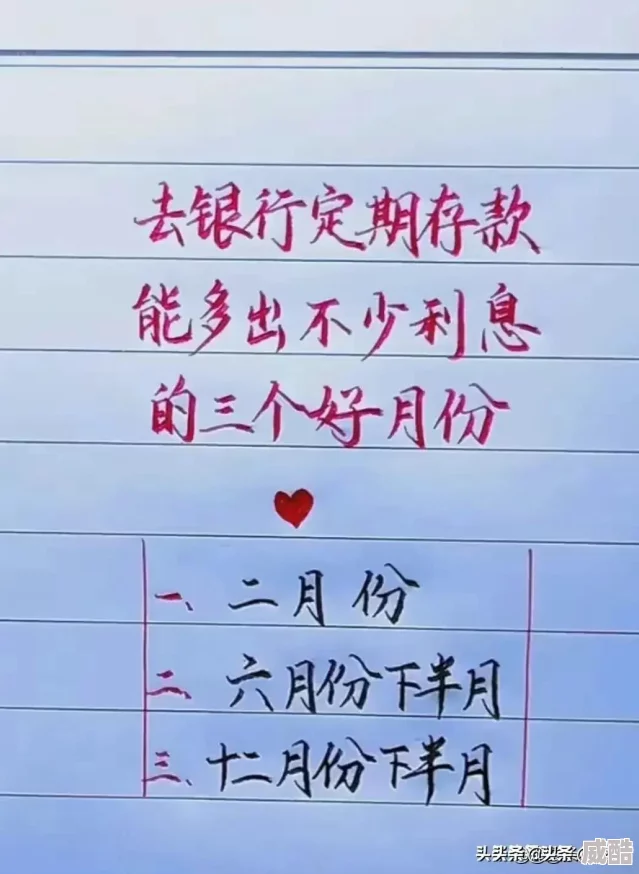 去银行定期存款
能多出不少利息
的三个好月份
一、二月份
二、六月份下半月
三、十二月份下半月
头条
威酷